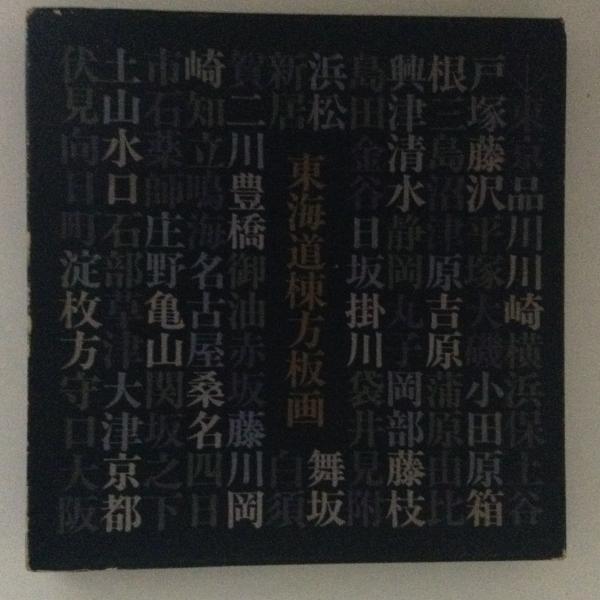 ↓東京品川川崎横浜保土谷
戸塚藤沢平塚大磯小田原箱
根三島沼津原吉原蒲原由比
興津清水静岡丸子岡部藤枝
島田金谷日坂掛川袋井見附
浜松 舞坂
東海道棟方板画
新居 白須
賀二川豊橋御油赤坂藤川岡
崎知立鳴海名古屋桑名四日
市石薬師庄野亀山関坂之下
土山水口石部草津大津京都
伏見向日町淀枚方守口大阪